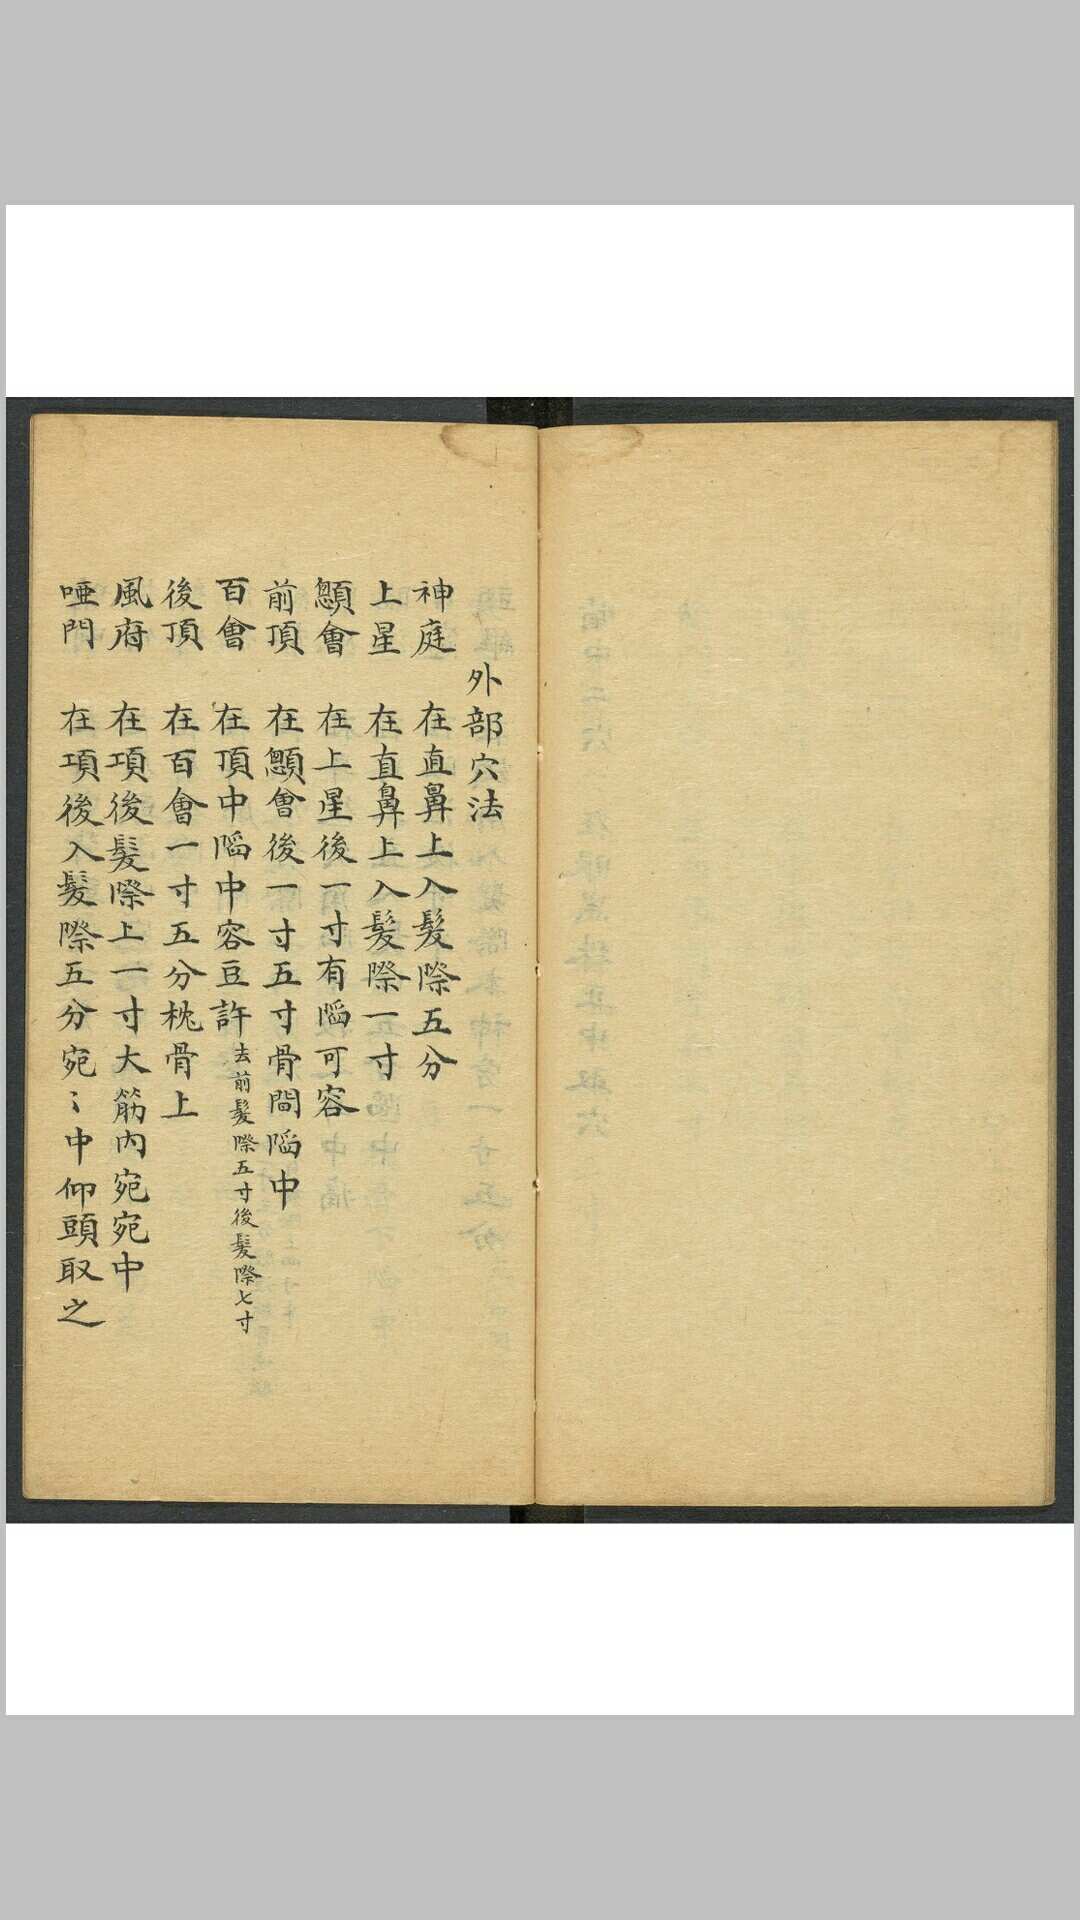 外部穴法
神庭 在直鼻上入髮際五分
上星 在直鼻上入髮際一寸
顖會 在上星後一寸有陷可容
前頂 在顖會後一寸五寸骨間陷中
百會 在頂中陷中容豆許去前髮際五寸後髮際七寸
後頂 在百會一寸五分枕骨上
風府 在項後髮際上一寸大筋內宛宛中
啞門 在項後入髮際五分宛〻中仰頭取之